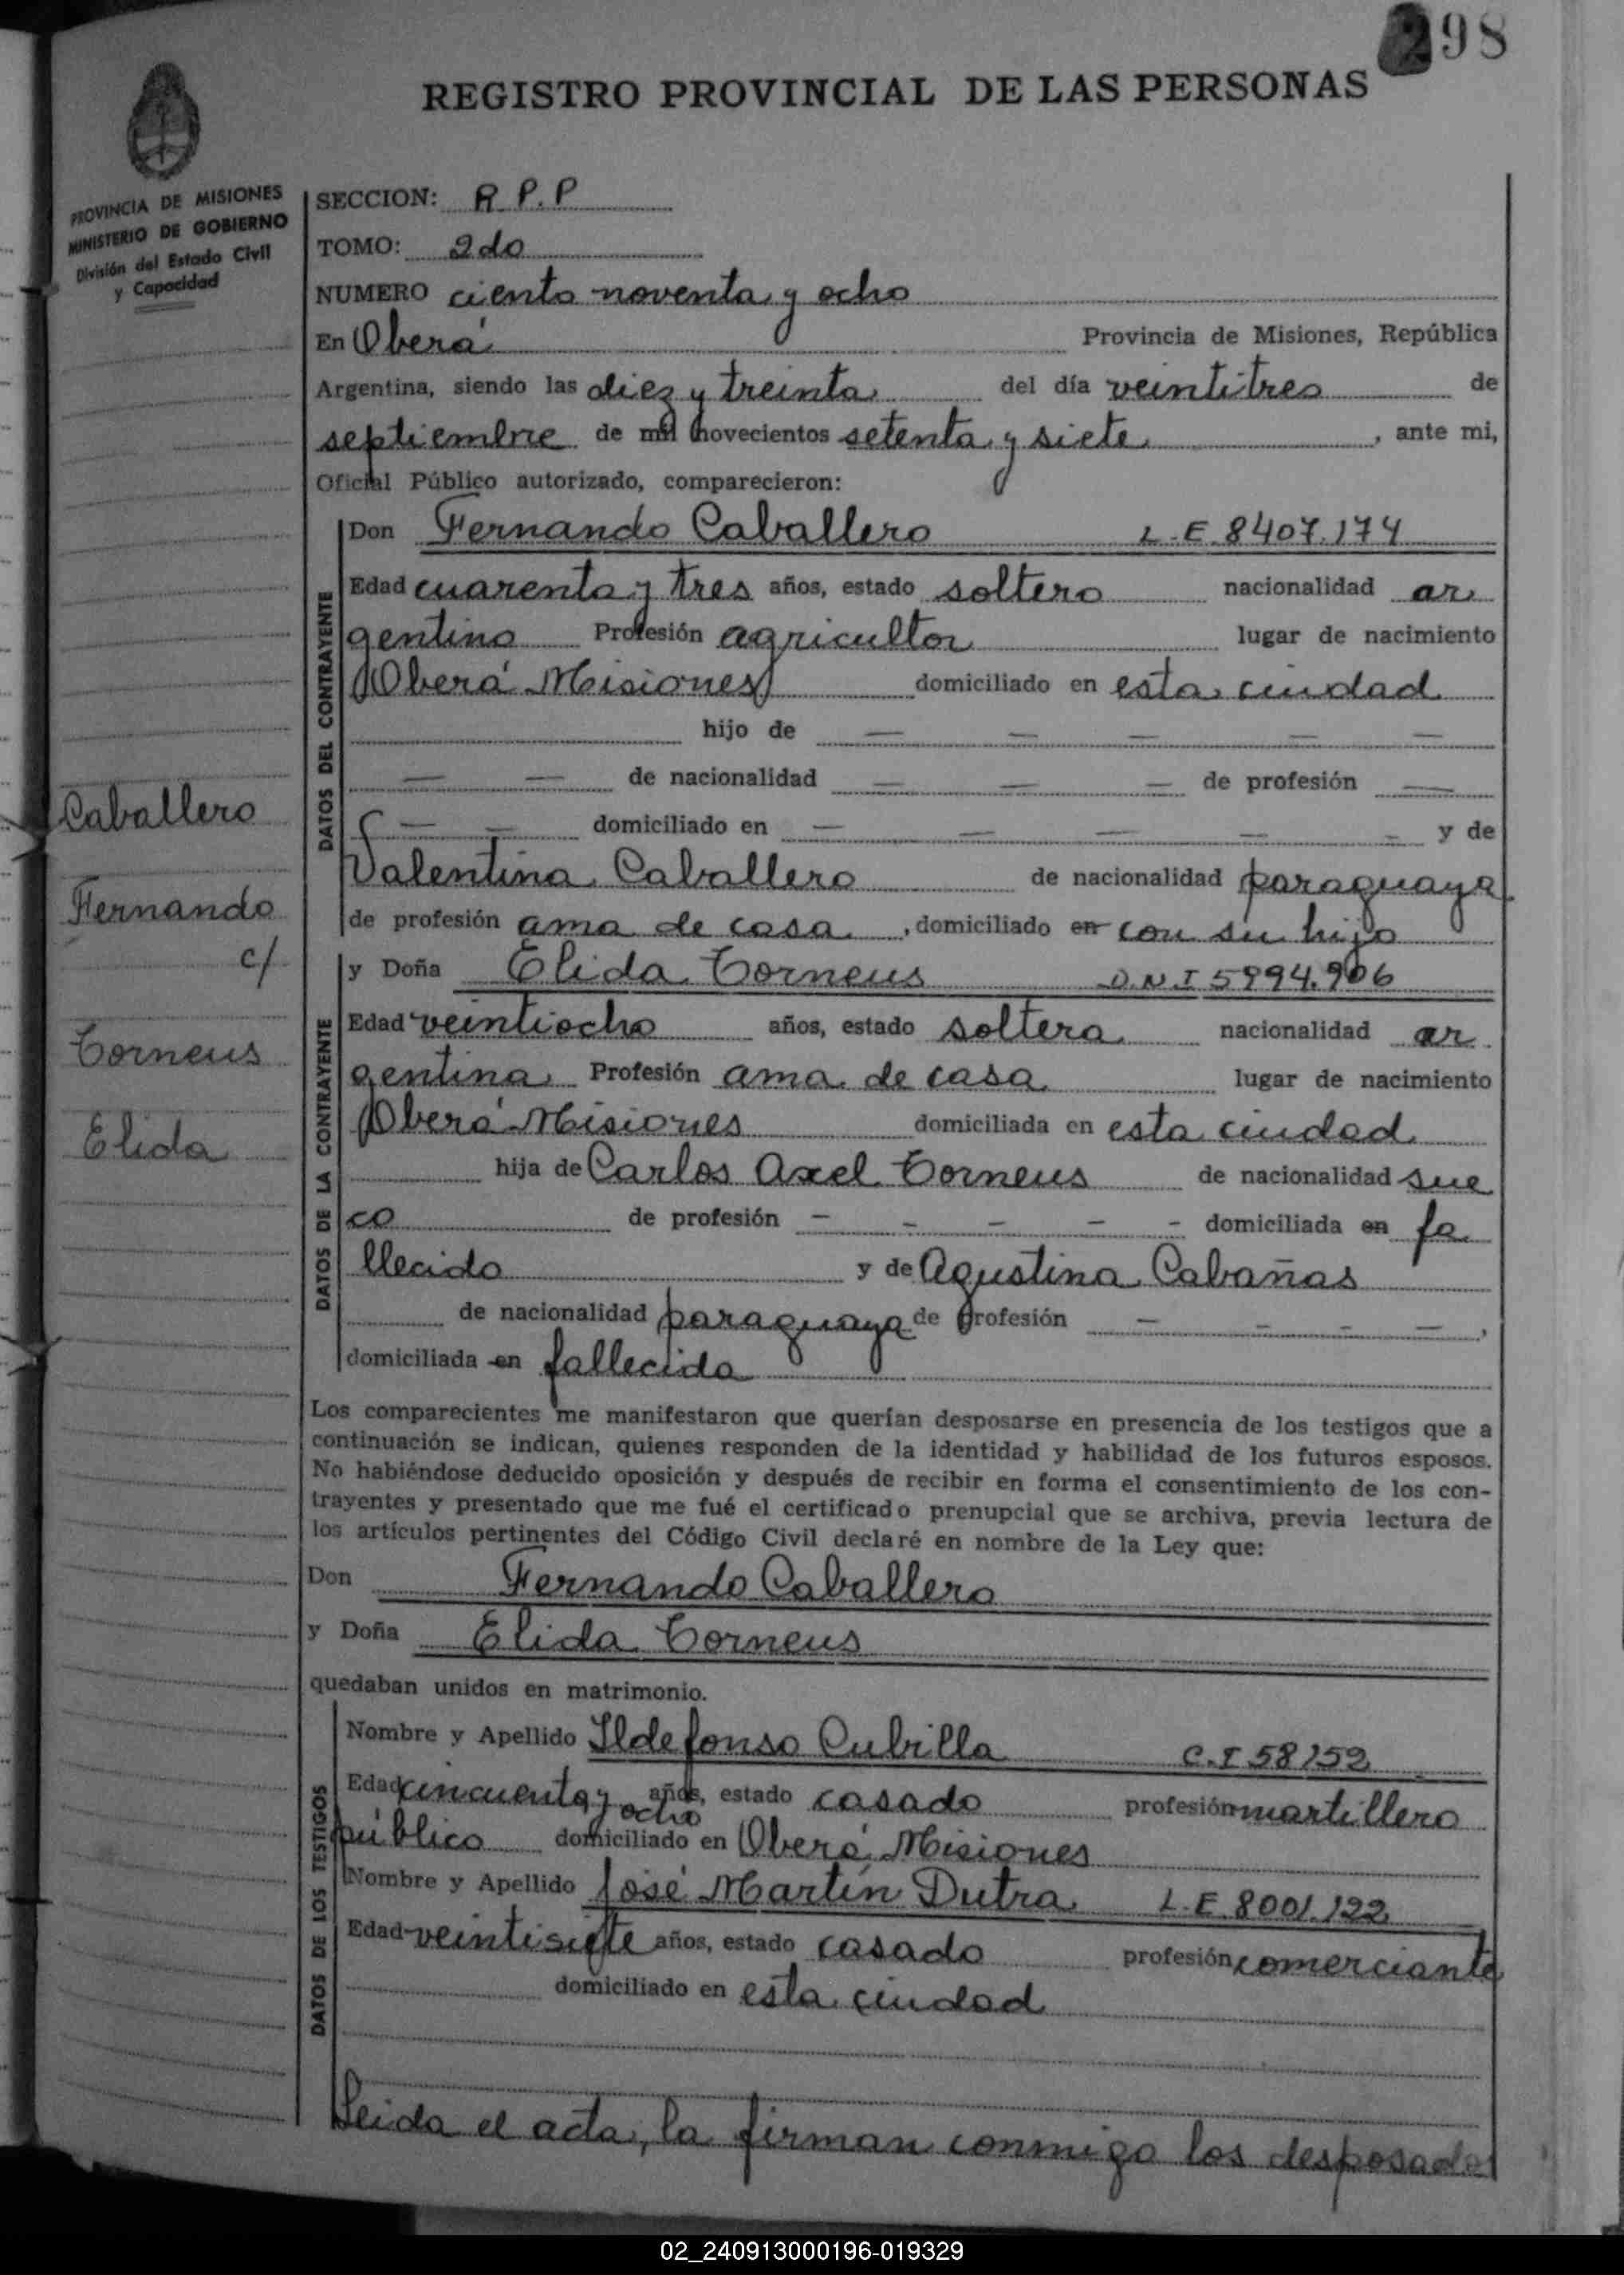 298
REGISTRO PROVINCIAL DE LAS PERSONAS
PROVINCIA DE MISIONES
MINISTERIO DE GOBIERNO
División del Estado Civil
y Capacidad
SECCION: R.P.P
TOMO: 2do
NUMERO ciento noventa y ocho
En Oberá Provincia de Misiones, República
Argentina, siendo las diez y treinta del día veintitres de
septiembre de mil novecientos setenta y siete, ante mi,
Oficial Público autorizado, comparecieron:
DATOS DEL CONTRAYENTE
Don Fernando Caballero L.E. 8407.174
Edad cuarenta y tres años, estado soltero nacionalidad ar
gentino Profesión agricultor lugar de nacimiento
Oberá Misiones domiciliado en esta ciudad
hijo de — — — — —
— — de nacionalidad — — — de profesión —
— — domiciliado en — — — — — y de
Valentina Caballero de nacionalidad paraguaya
de profesión ama de casa, domiciliado en con su hijo
Caballero
Fernando
c/
Torneus
Elida
DATOS DE LA CONTRAYENTE
y Doña Elida Torneus D.N.I 5994.906
Edad veintiocho años, estado soltera nacionalidad ar
gentina Profesión ama de casa lugar de nacimiento
Oberá Misiones domiciliada en esta ciudad
hija de Carlos Axel Torneus de nacionalidad sue
co de profesión — — — — — domiciliada en fa
llecido y de Agustina Cabañas
de nacionalidad paraguaya de profesión — — — —,
domiciliada en fallecida
Los comparecientes me manifestaron que querían desposarse en presencia de los testigos que a
continuación se indican, quienes responden de la identidad y habilidad de los futuros esposos.
No habiéndose deducido oposición y después de recibir en forma el consentimiento de los con-
trayentes y presentado que me fué el certificado prenupcial que se archiva, previa lectura de
los artículos pertinentes del Código Civil declaré en nombre de la Ley que:
Don Fernando Caballero
y Doña Elida Torneus
quedaban unidos en matrimonio.
DATOS DE LOS TESTIGOS
Nombre y Apellido Ildefonso Cubilla C.I 58152
Edad cincuenta y ocho años, estado casado profesión martillero
público domiciliado en Oberá Misiones
Nombre y Apellido José Martín Dutra L.E. 8001.122
Edad veintisiete años, estado casado profesión comerciante
domiciliado en esta ciudad
Leida el acta, la firman conmigo los desposados
02_240913000196-019329